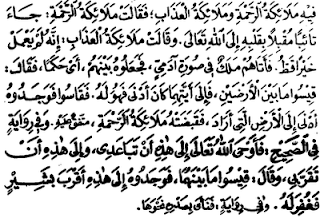 فِيهِ مَلَائِكَةُ الرَّحْمَةِ وَمَلَائِكَةُ الْعَذَابِ؛ فَقَالَتْ مَلَائِكَةُ الرَّحْمَةِ: جَاءَ
تَائِبًا مُقْبِلًا بِقَلْبِهِ إِلَى اللهِ تَعَالَى. وَقَالَتْ مَلَائِكَةُ الْعَذَابِ: إِنَّهُ لَمْ يَعْمَلْ
خَيْرًا قَطُّ. فَأَتَاهُمْ مَلَكٌ فِي صُورَةِ آدَمِيٍّ، فَجَعَلُوهُ بَيْنَهُمْ، أَيْ حَكَمًا، فَقَالَ:
قِيسُوا مَا بَيْنَ الْأَرْضَيْنِ، فَإِلَى أَيَّتِهِمَا كَانَ أَدْنَى فَهُوَ لَهُ. فَقَاسُوا فَوَجَدُوهُ
أَدْنَى إِلَى الْأَرْضِ الَّتِي أَرَادَ، فَقَبَضَتْهُ مَلَائِكَةُ الرَّحْمَةِ، مُتَّفَقٌ عَلَيْهِ. وَفِي رِوَايَةٍ
فِي الصَّحِيحِ، فَأَوْحَى اللهُ تَعَالَى إِلَى هَذِهِ أَنْ تَبَاعَدِي، وَإِلَى هَذِهِ أَنْ
تَقَرَّبِي، وَقَالَ: قِيسُوا مَا بَيْنَهُمَا، فَوَجَدُوهُ إِلَى هَذِهِ أَقْرَبَ بِشِبْرٍ
فَغُفِرَ لَهُ. وَفِي رِوَايَةٍ: فَنَأَى بِصَدْرِهِ نَحْوَهَا.